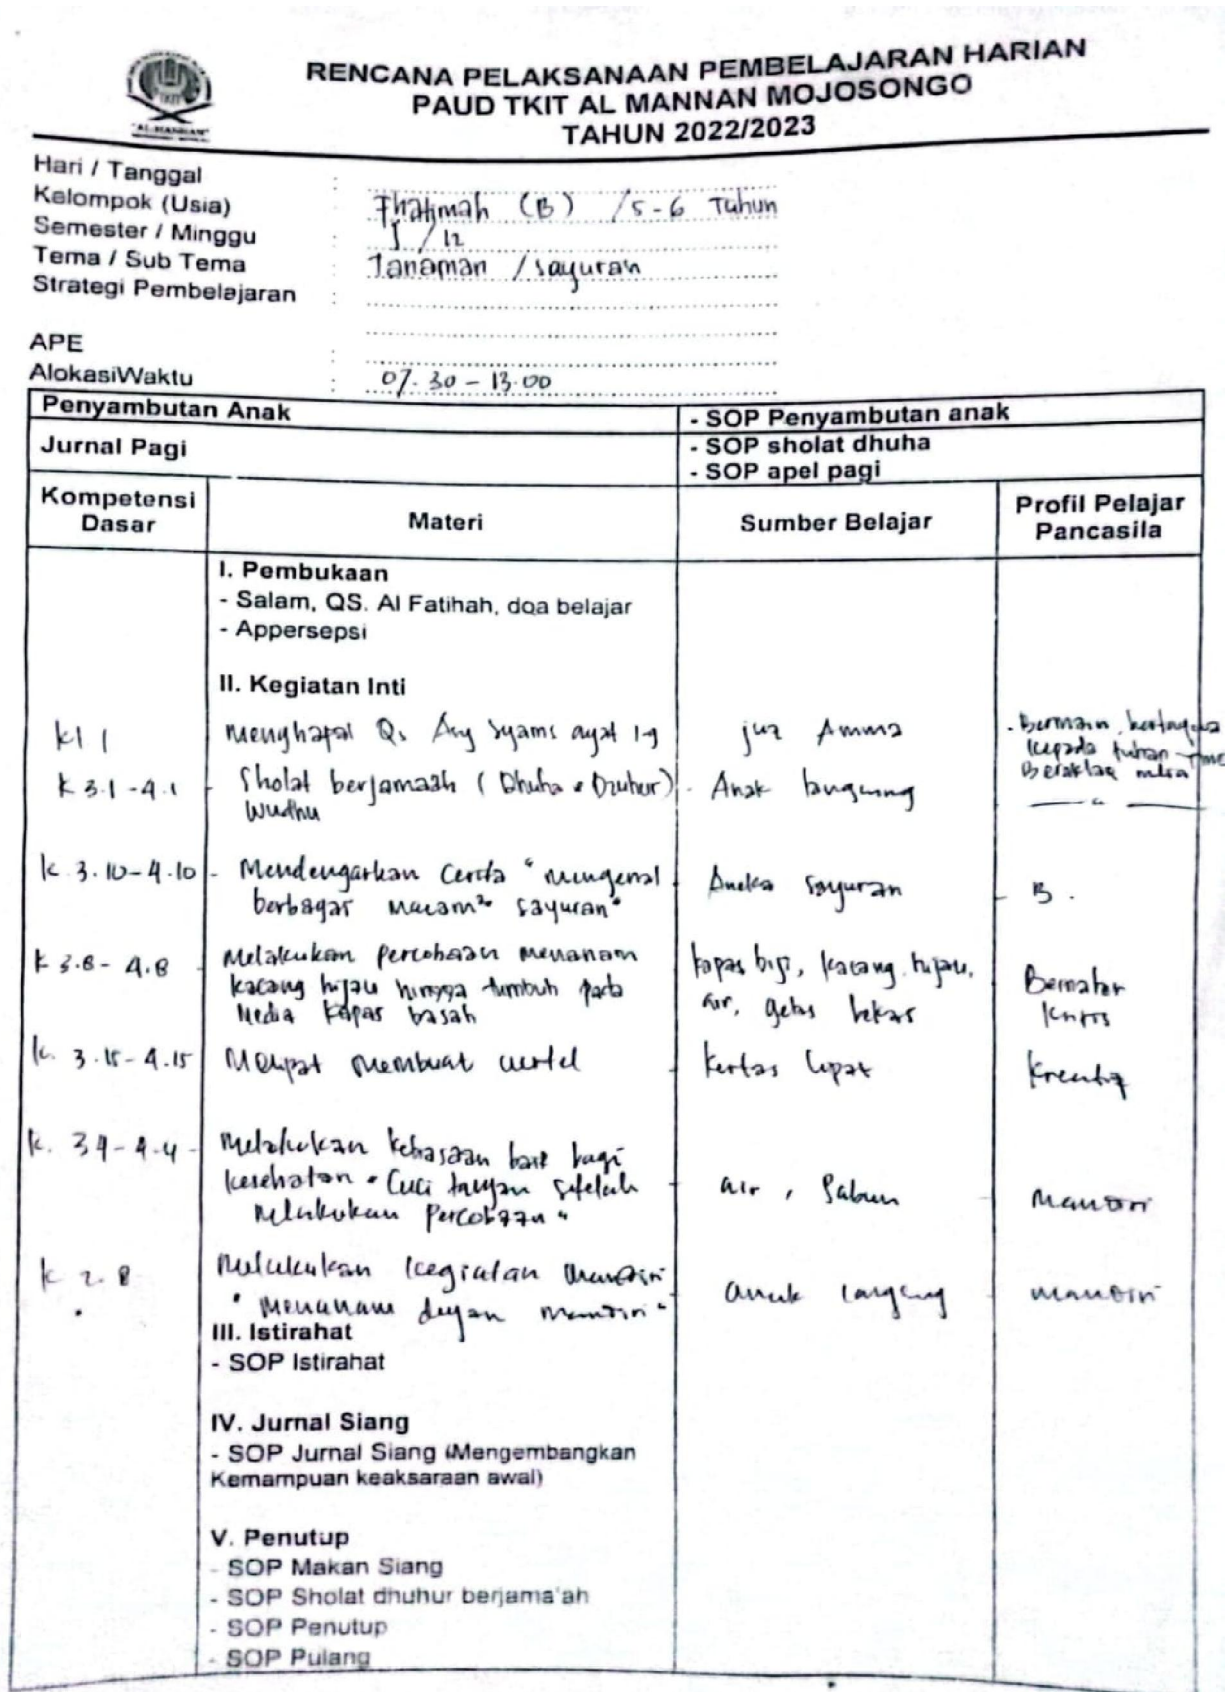 RENCANA PELAKSANAAN PEMBELAJARAN HARIAN
PAUD TKIT AL MANNAN MOJOSONGO
TAHUN 2022/2023
"AL-MANNAN"
Hari / Tanggal :
Kelompok (Usia) : Fhatimah (B) / 5-6 Tahun
Semester / Minggu : I / 12
Tema / Sub Tema : Tanaman / sayuran
Strategi Pembelajaran :
APE :
AlokasiWaktu : 07.30 - 13.00
Penyambutan Anak
- SOP Penyambutan anak
Jurnal Pagi
- SOP sholat dhuha
- SOP apel pagi
Kompetensi Dasar
Materi
Sumber Belajar
Profil Pelajar Pancasila
I. Pembukaan
- Salam, QS. Al Fatihah, doa belajar
- Appersepsi
II. Kegiatan Inti
Menghapal Qs Asy Syams ayat 1-9
juz Amma
- Beriman, bertaqwa
kepada tuhan
Berakhlaq mulia
K 3.1 - 4.1
- Sholat berjamaah (Dhuha + Dzuhur)
Wudhu
- Anak langsung
K. 3.10 - 4.10
- Mendengarkan Cerita "mengenal
berbagai macam2 sayuran"
- Aneka Sayuran
- B.
K 3.8 - 4.8
- Melakukan Percobaan menanam
kacang hijau hingga tumbuh pada
Media kapas basah
kapas biji, kacang hijau,
air, gelas bekas
Bernalar
kritis
K. 3.15 - 4.15
- Melipat membuat wortel
- Kertas lipat
Kreatif
K. 3.4 - 4.4
- Melakukan kebiasaan baik bagi
kesehatan "Cuci tangan setelah
melakukan Percobaan"
- air, Sabun
- Mandiri
K 2.8
Melakukan kegiatan Mandiri
"Menanam dengan mandiri"
anak langsung
- mandiri
III. Istirahat
- SOP Istirahat
IV. Jurnal Siang
- SOP Jurnal Siang (Mengembangkan
Kemampuan keaksaraan awal)
V. Penutup
- SOP Makan Siang
- SOP Sholat dhuhur berjama'ah
- SOP Penutup
- SOP Pulang